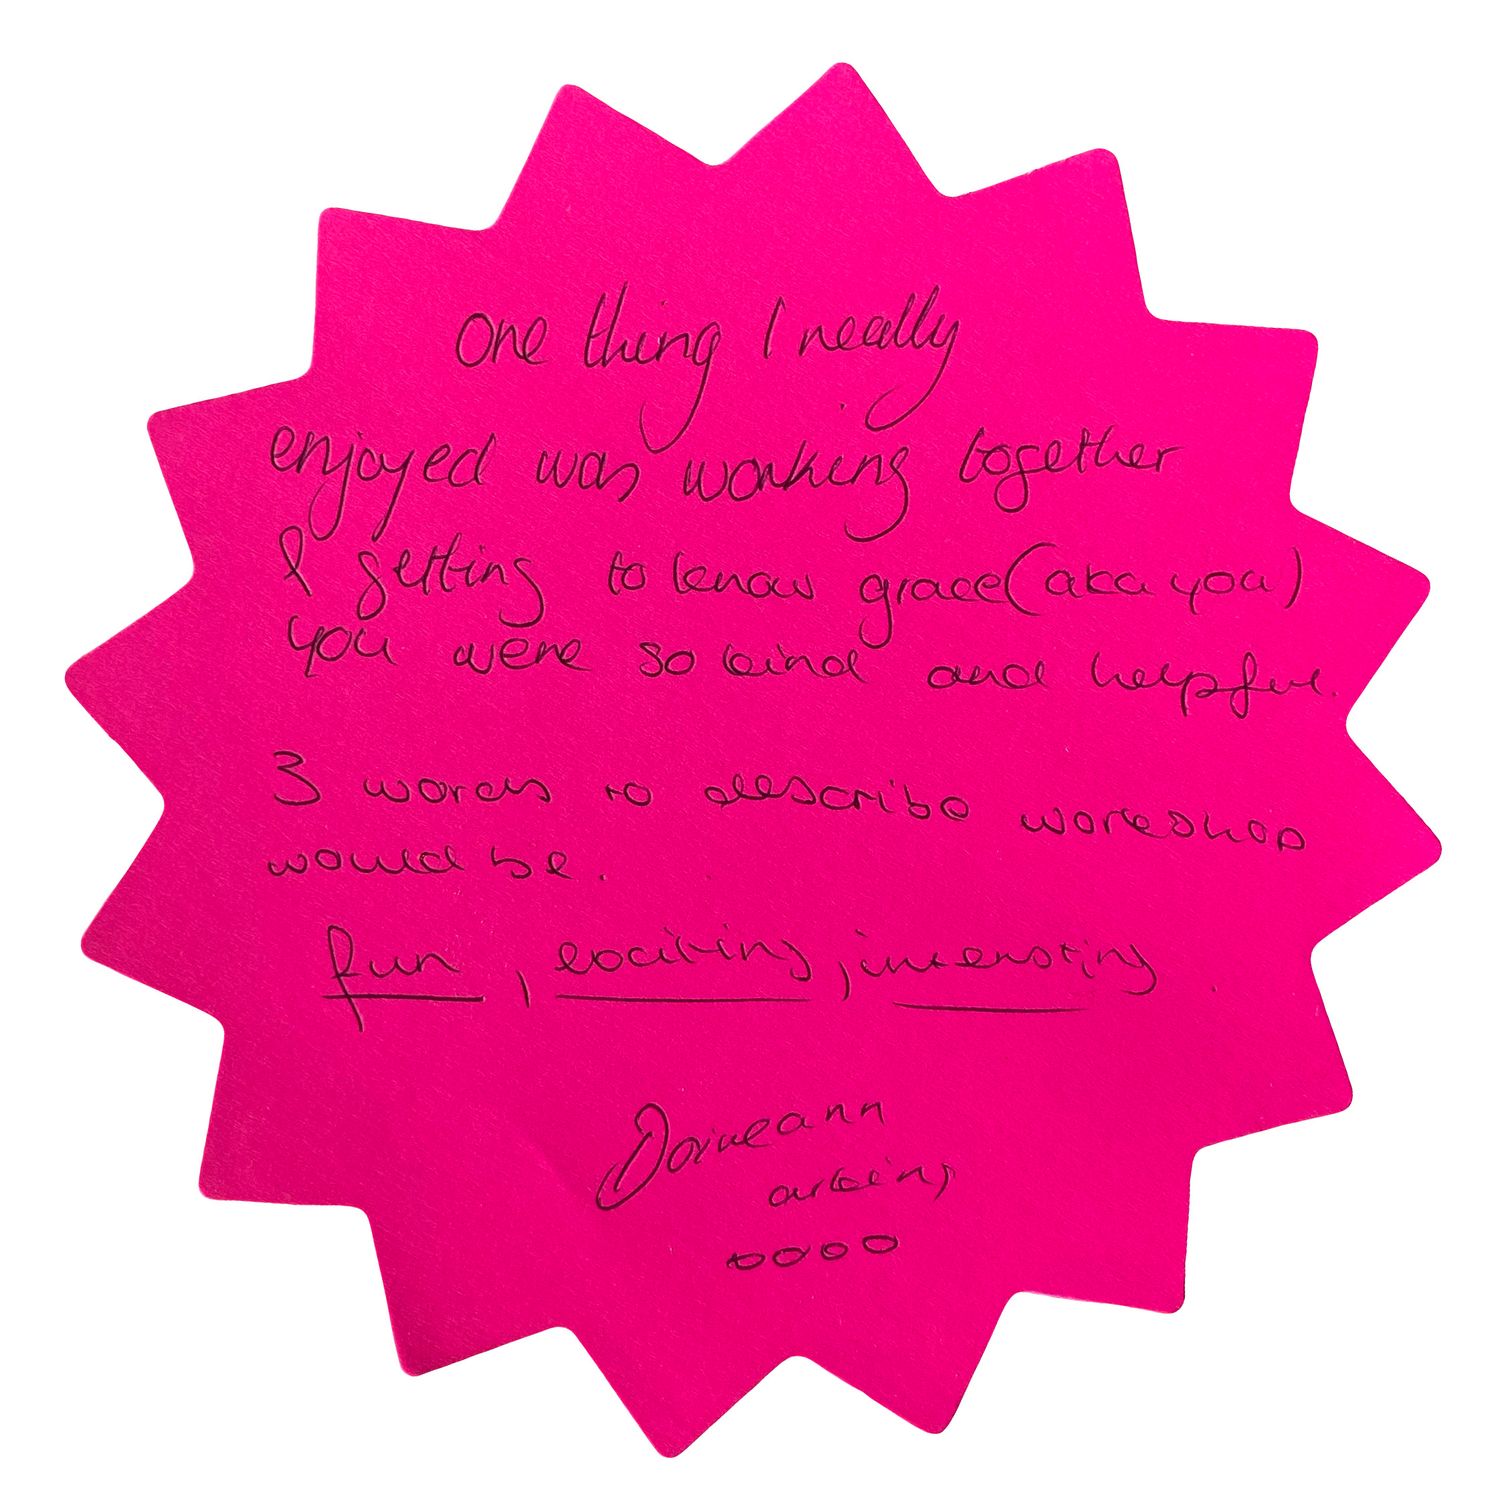 One thing I really
enjoyed was working together
& getting to know grace (aka you)
you were so kind and helpful.
3 words to describe workshop
would be.
fun, exciting, interesting
oooo